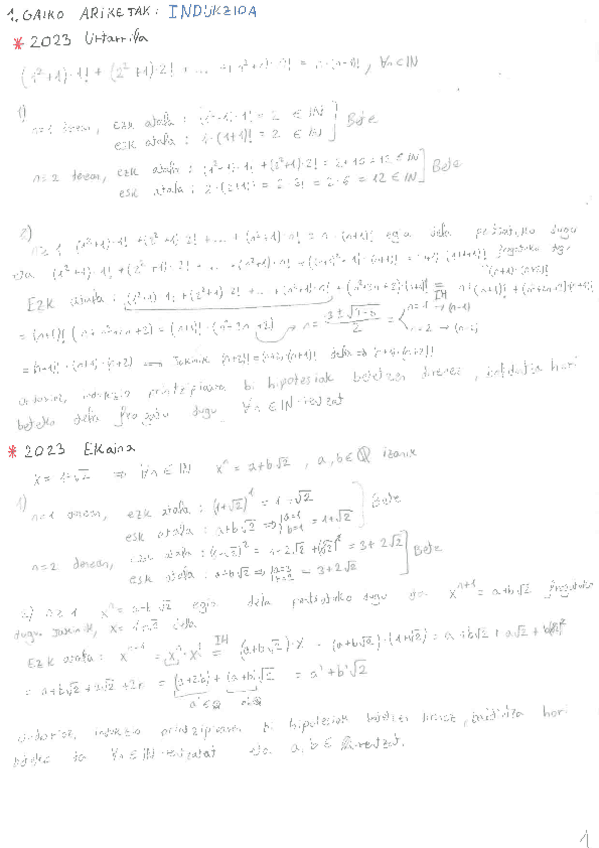 1. GAIKO ARIKETAK: INDUKZIOA
* 2023 Urtarrila
(1²+1)·1! + (2²+1)·2! + ... + (n²+1)·n! = n·(n+1)!, ∀n∈IN
1)
n=1 denean, ezk atala: (1²+1)·1! = 2 ∈ IN
esk atala: 1·(1+1)! = 2 ∈ IN ] Bete
n=2 denean, ezk atala: (1²+1)·1! + (2²+1)·2! = 2+10 = 12 ∈ IN
esk atala: 2·(2+1)! = 2·3! = 2·6 = 12 ∈ IN ] Bete
2)
n≥1 (1²+1)·1! + (2²+1)·2! + ... + (n²+1)·n! = n·(n+1)! egia dela pentsatuko dugu
eta (1²+1)·1! + (2²+1)·2! + ... + (n²+1)·n! +
Ezk atala: (1²+1)·1! + (2²+1)·2! + ... + (n²+1)·n! + (n²+2n+2)·(n+1)! = IH n·(n+1)! + (n²+2n+2)·(n+1)!
= (n+1)! (n+n²+2n+2) = (n+1)!·(n²+3n+2)
= (n+1)!·(n+1)·(n+2) → Jakinik (n+2)! = (n+2)·(n+1)! dela
Ondorioz, indukzio printzipioaren bi hipotesiak betetzen direnez, berdintza hori
beteko dela frogatu dugu ∀n∈IN
* 2023 Ekaina
x = 1+√2 ⇒ ∀n∈IN xⁿ = a+b√2, a,b∈Q izanik
1)
n=1 denean, ezk atala: (1+√2)¹ = 1+√2
esk atala: a+b√2 ⇒ a=1 b=1 = 1+√2 ] Bete
n=2 denean, ezk atala: (1+√2)² = 1+2√2+(√2)² = 3+2√2
esk atala: a+b√2 ⇒ a=3 b=2 = 3+2√2 ] Bete
2) n≥1 xⁿ = a+b√2 egia dela pentsatuko dugu eta xⁿ⁺¹ = a+b√2 frogatuko
dugu jakinik, x = 1+√2 dela
Ezk atala: xⁿ⁺¹ = xⁿ·x¹ = IH (a+b√2)·x = (a+b√2)·(1+√2) = a+b√2+a√2+b(√2)²
= a+b√2+a√2+2b = (a+2b)+(a+b)√2 = a'+b'√2
a'∈Q b'∈Q
Ondorioz, indukzio printzipioaren bi hipotesiak betetzen direnez, berdintza hori
beteko da ∀n∈IN eta a,b∈
1